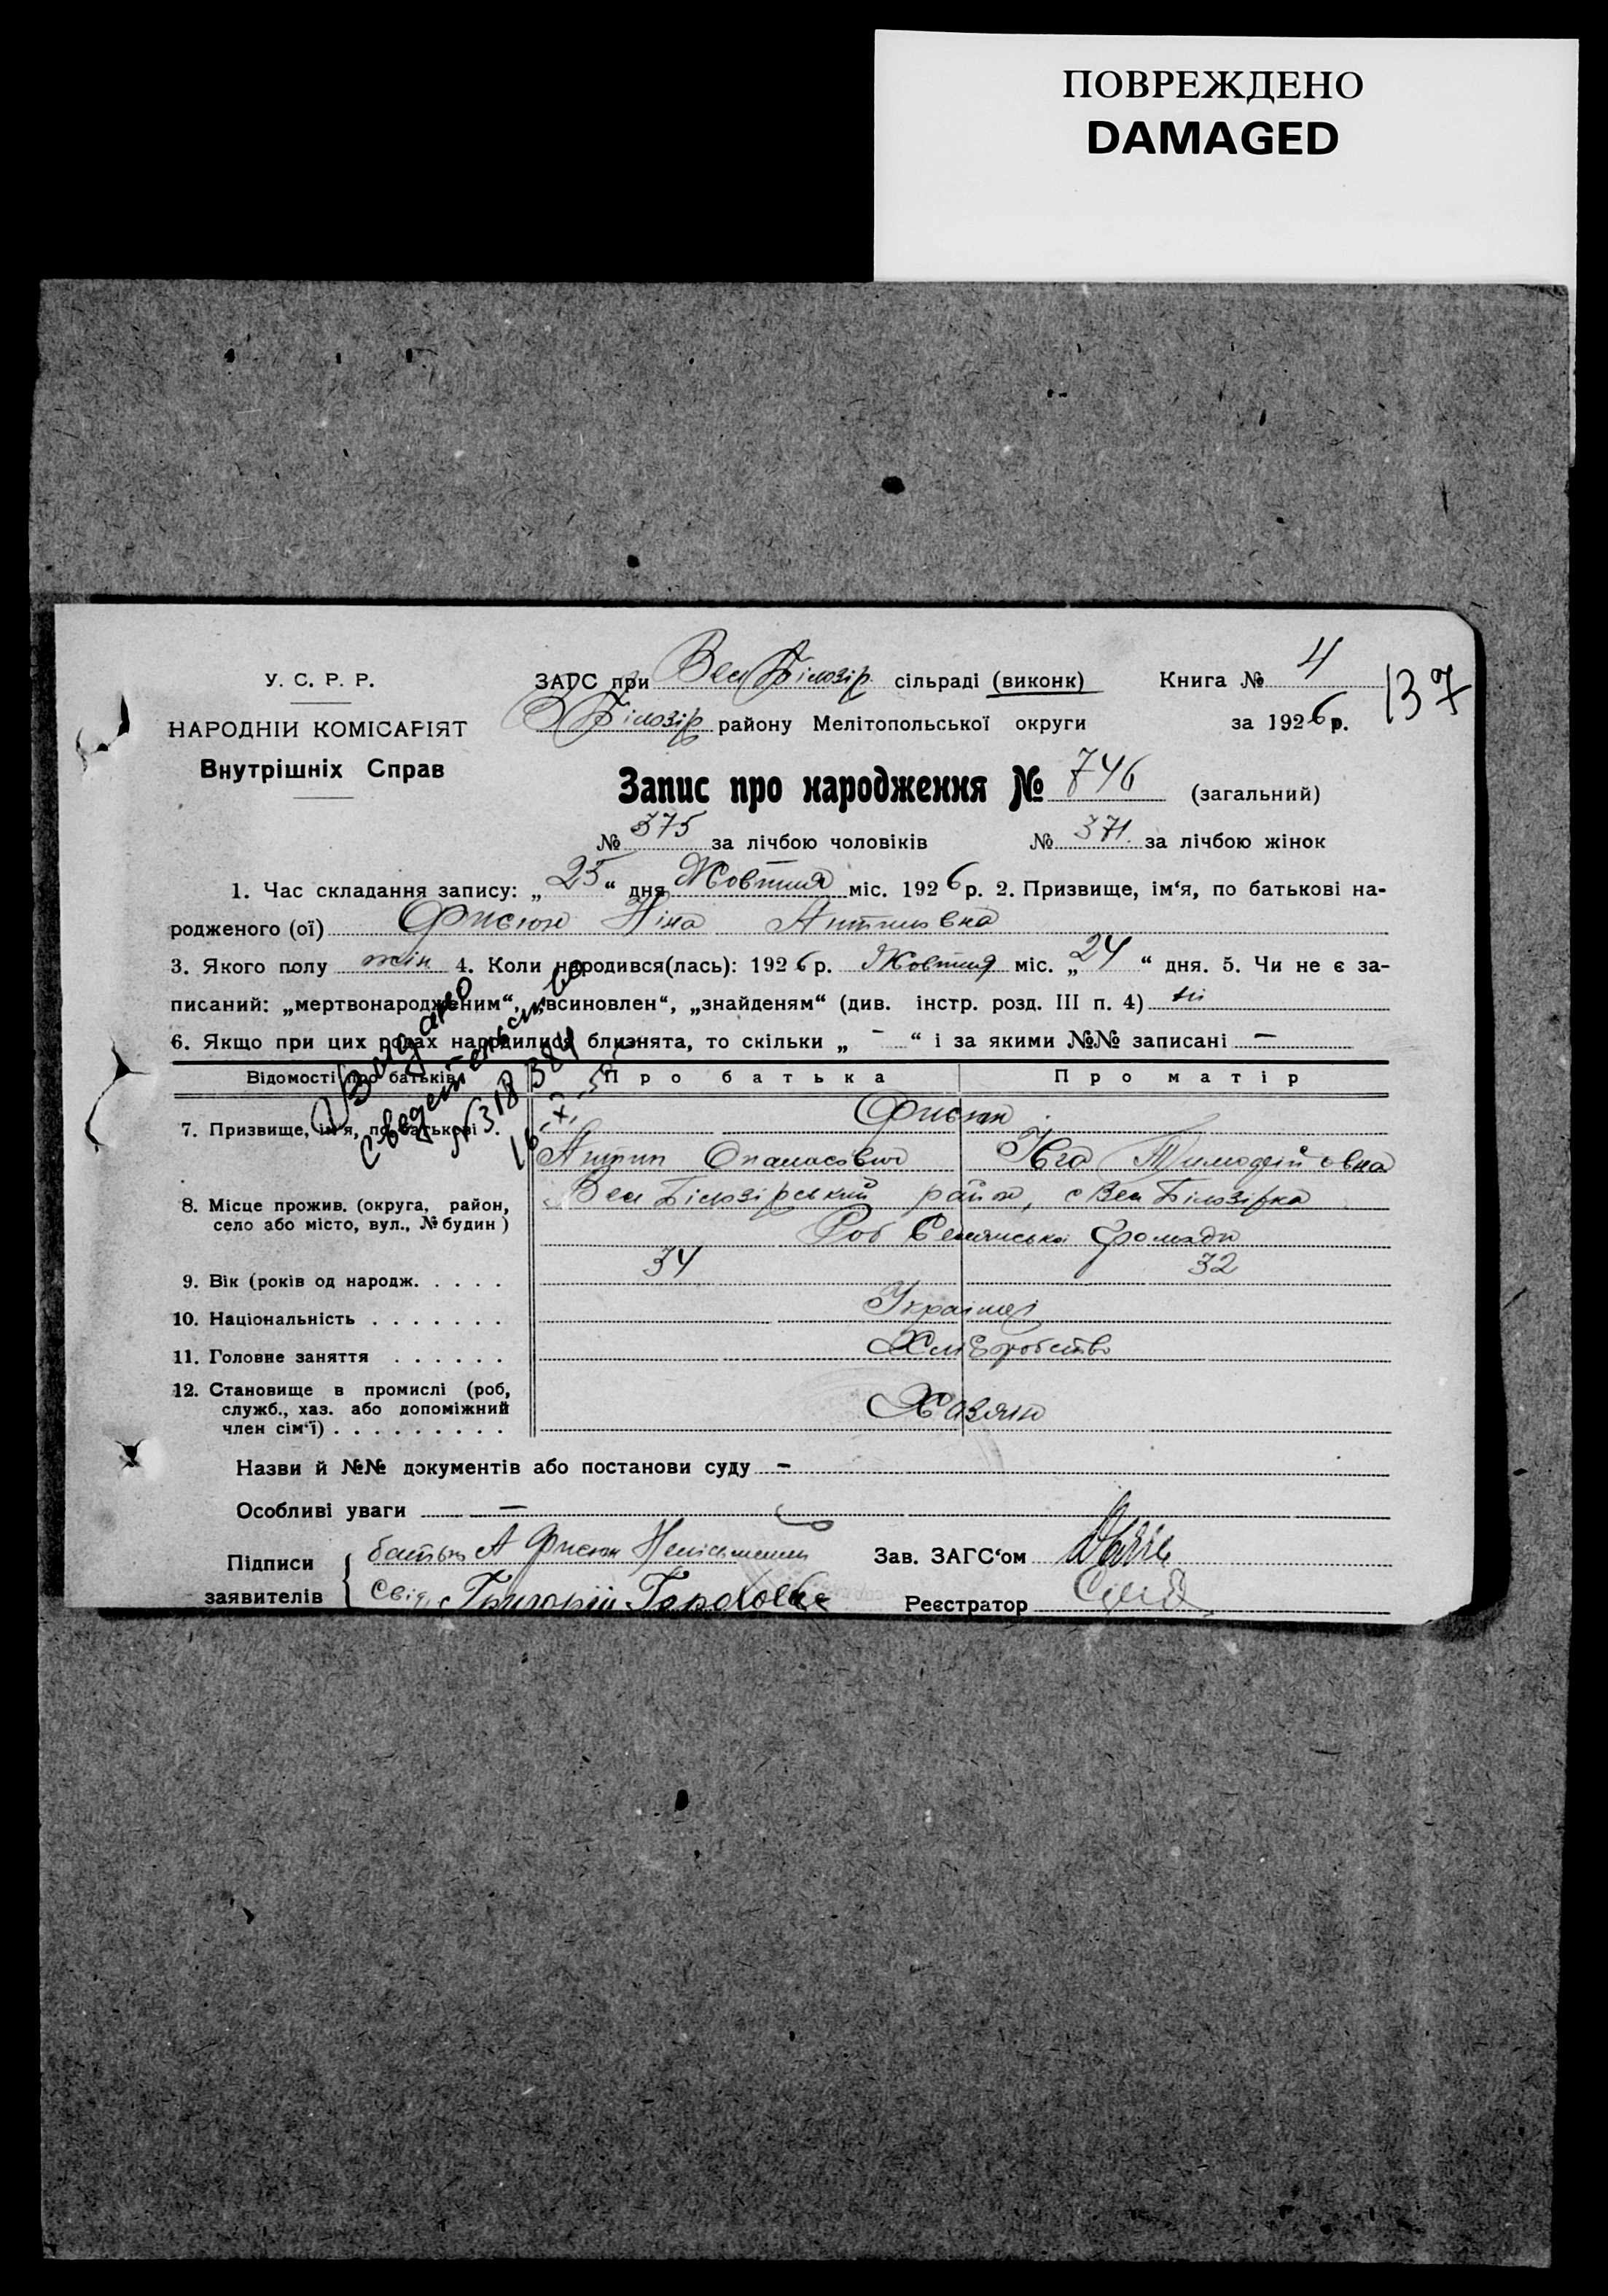 ПОВРЕЖДЕНО
DAMAGED
У. С. Р. Р.
НАРОДНІЙ КОМІСАРІЯТ
Внутрішніх Справ
ЗАГС при Вел Білозір. сільраді (виконк)
В Білозір району Мелітопольської округи
Книга № 4
за 1926 р.
137
Запис про народження № 746 (загальний)
№ 375 за лічбою чоловіків № 371. за лічбою жінок
1. Час складання запису: „25“ дня Жовтня міс. 1926 р. 2. Призвище, ім‘я, по батькові на-
родженого (ої) Фисюн Ніна Антиповна
3. Якого полу жін 4. Коли народився(лась): 1926 р. Жовтня міс. „24“ дня. 5. Чи не є за-
писаний: „мертвонародженим“, „всиновлен“, „знайденям“ (див. інстр. розд. III п. 4) ні
6. Якщо при цих родах народилися близнята, то скільки „ - “ і за якими №№ записані —
Видано
сведетельство
№ 318 384
16-X-50
Відомості про батьків Про батька Про матір
7. Призвище, ім‘я, по батькові . Фисюн
Антип Опанасович Ївга Тимофійовна
8. Місце прожив. (округа, район,
село або місто, вул., № будин )
Вел Білозірський район, с Вел Білозірка
громади
9. Вік (років од народж. . . . . 34 32
10. Національність . . . . . . . Українці
11. Головне заняття . . . . . . Хліборобство
12. Становище в промислі (роб,
служб., хаз. або допоміжний
член сім‘ї) . . . . . . . . . Хазяїн
Назви й №№ документів або постанови суду -
Особливі уваги —
Підписи
заявителів
батько А Фисюн Неписьменн
Свід. Григорій
Зав. ЗАГС‘ом
Реєстратор